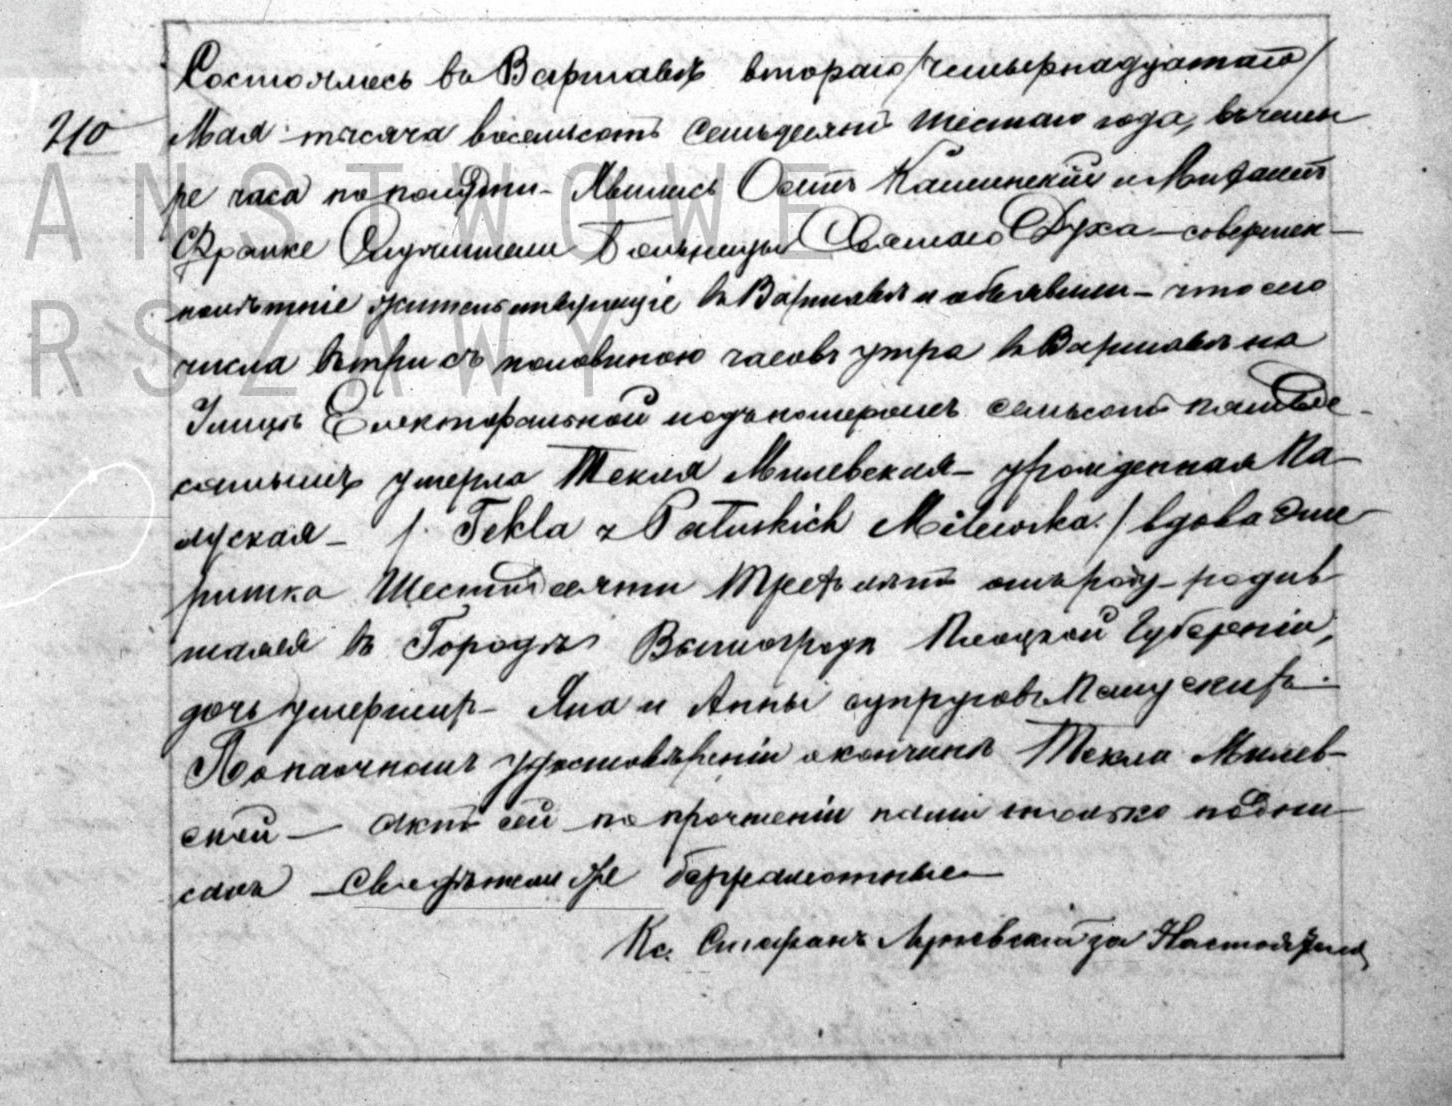 Состоялось въ Варшавѣ втораго /четырнадцатаго/
210
Мая тысяча восемьсотъ семьдесятъ шестаго года, въ четы
ре часа по полудни – Явились Осипъ Каминскій и
Франке Служители Больницы Святаго Духа – совершен-
нолѣтніе жительствующіе въ Варшавѣ и объявили – что сего
числа въ три съ половиною часовъ утра въ Варшавѣ на
Улицѣ Електоральной подъ номеромъ семьсотъ пятьде-
сятымъ умерла Текля Милевская – урожденная Па-
луская – /. Tekla z Patuskich Milewska./ вдова
ритка Шестьдесяти трехъ лѣтъ отъ роду – родив
шаяся въ Городѣ Вышогродѣ Плоцкой Губерніи,
дочь умершихъ – Яна и Анны супруговъ Палускихъ.
По наочномъ удостовѣреніи о кончинѣ Текли Милев-
ской – актъ сей по прочтеніи нами только подпи
санъ – Свидѣтели же безграмотные –
Кс. Стефанъ за Настоятеля
ANSTWOWE
RSZAWY